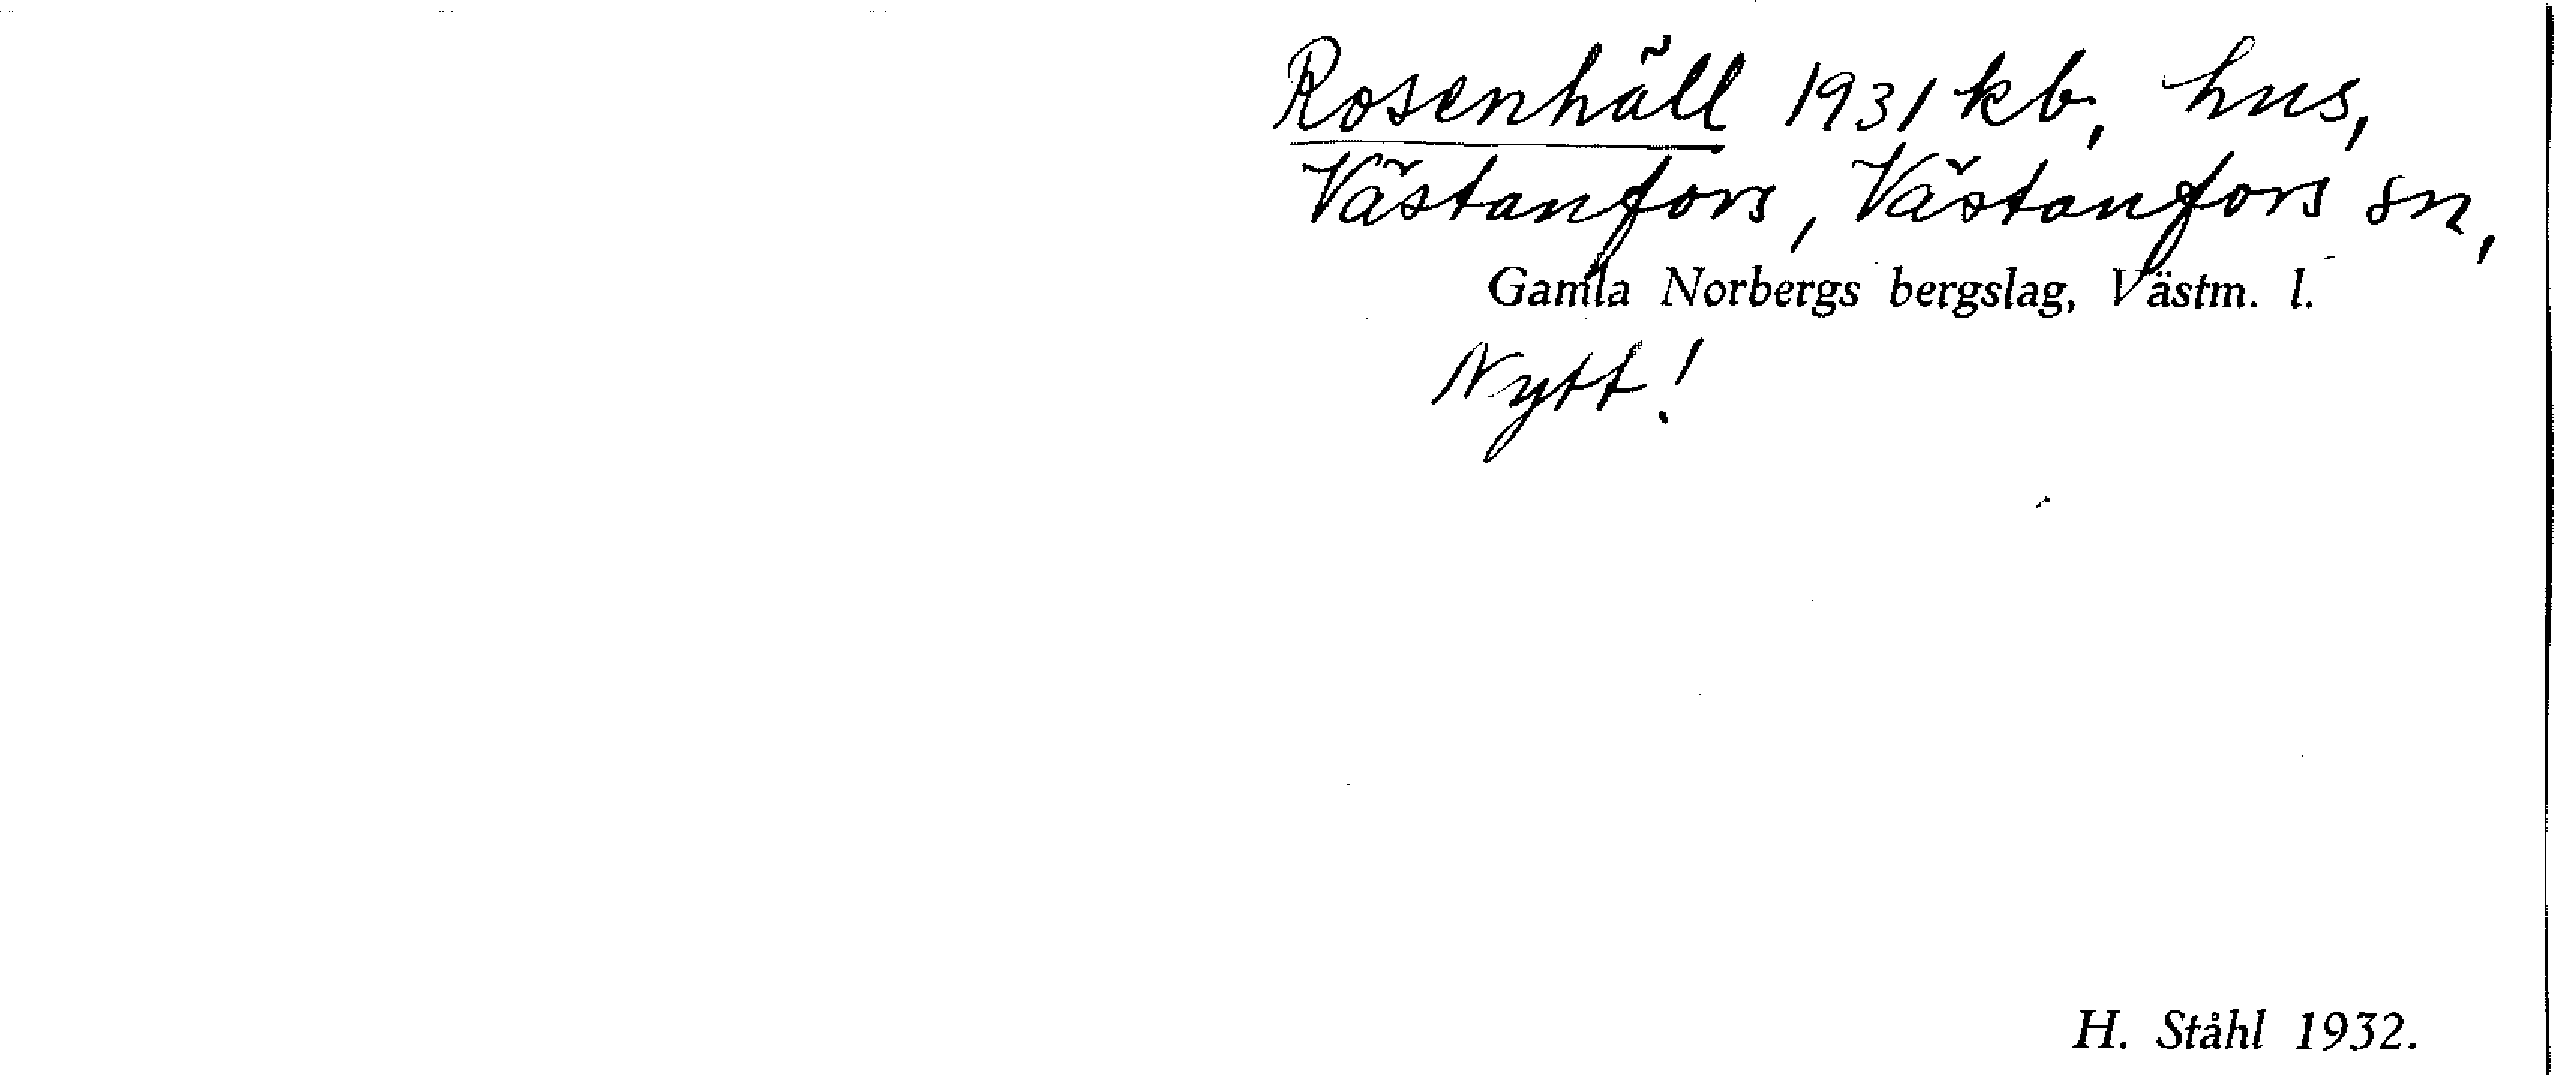 Rosenhäll 1931 kb, hus,
Västanfors, Västanfors sn,
Gamla Norbergs bergslag, Västm. l.
Nytt!
H. Ståhl 1932.